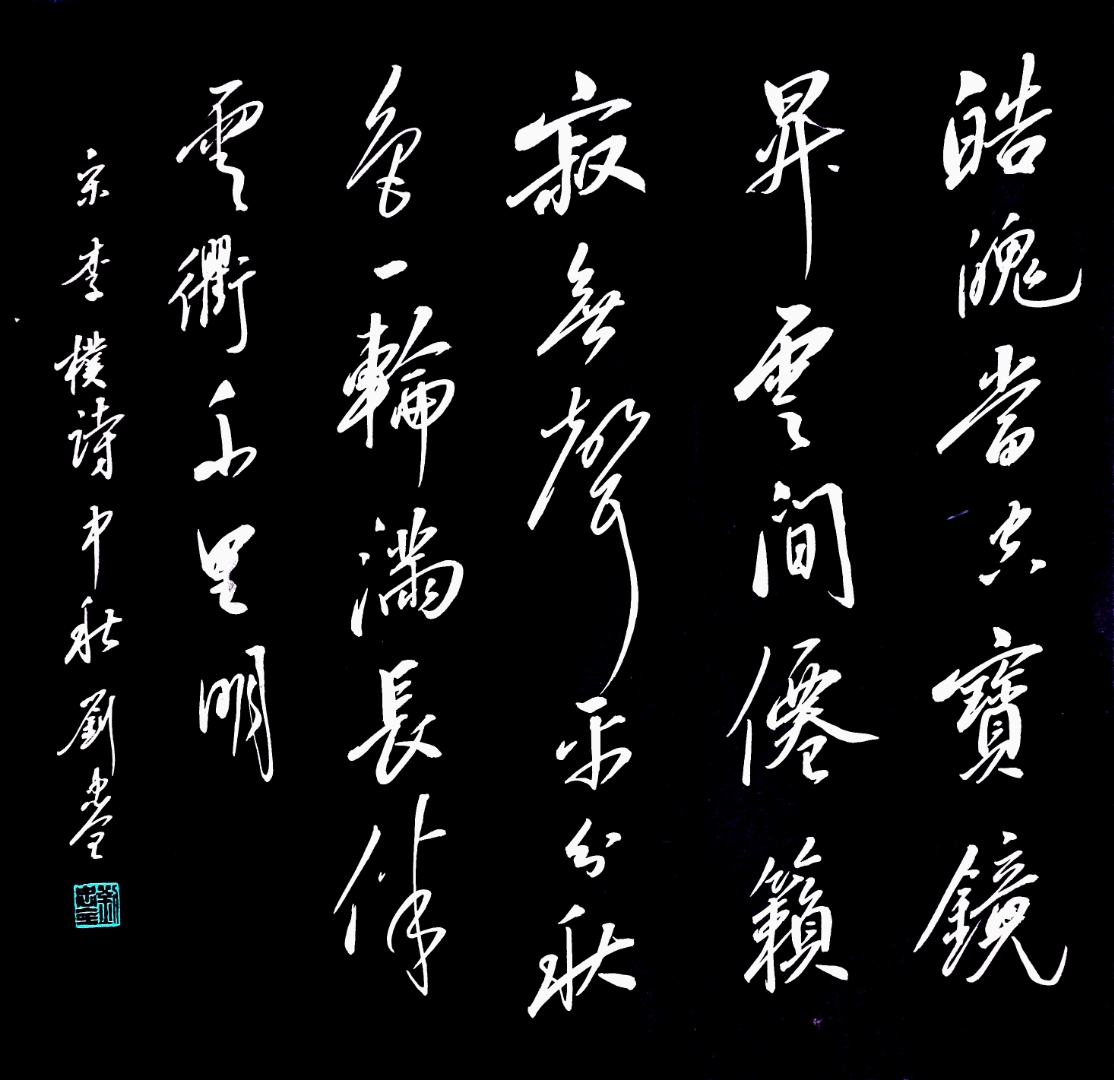 皓魄當空寶鏡
昇雲間僊籟
寂無聲平分秋
色一輪滿長伴
雲衢千里明
宋李樸詩中秋劉忠